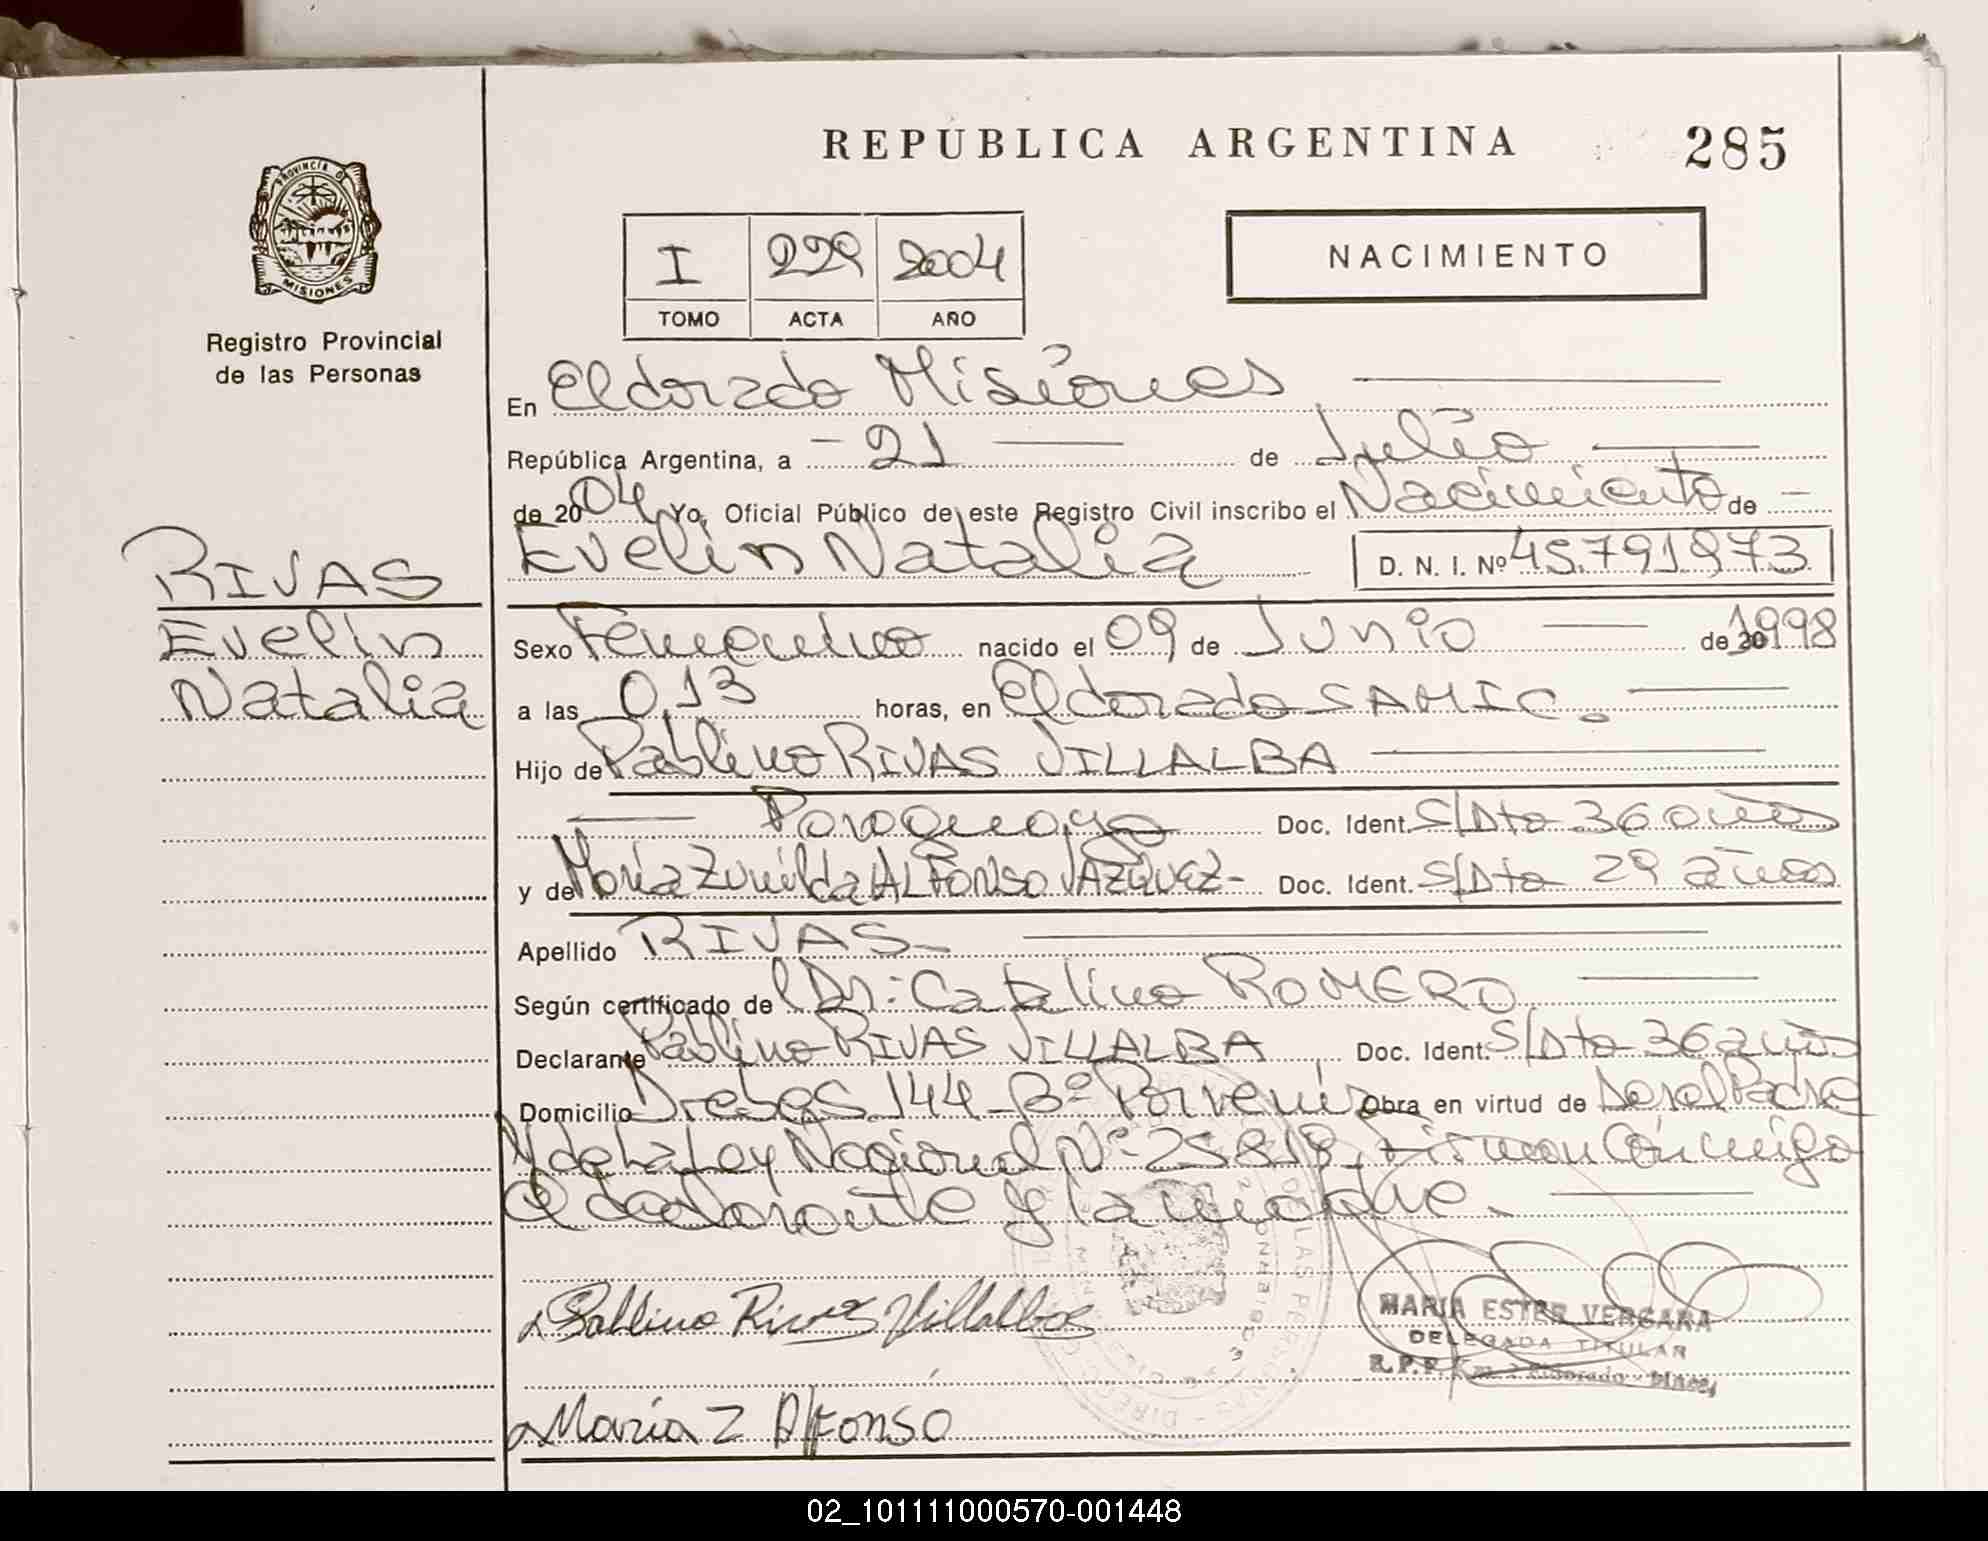 REPÚBLICA ARGENTINA
285
PROVINCIA D
MISIONES
Registro Provincial
de las Personas
I 229 2004
TOMO ACTA AÑO
NACIMIENTO
En Eldorado Misiones
República Argentina, a - 21 de Julio
de 2004 Yo, Oficial Público de este Registro Civil inscribo el Nacimiento de
Evelin Natalia D. N. I. Nº 45.791.973
RIVAS
Evelin
Natalia
Sexo Femenino nacido el 09 de Junio de 1998
a las 0,13 horas, en Eldorado SAMIC.
Hijo de Pablino RIVAS VILLALBA
Paraguayo Doc. Ident. S/Dto 36 años
y de María Zunilda ALFONSO VAZQUEZ- Doc. Ident. S/Dto 29 años
Apellido RIVAS
Según certificado de Dr: Catalino ROMERO
Declarante Pablino RIVAS VILLALBA Doc. Ident. S/Dto 36 años
Domicilio 144 Bº Porvenir Obra en virtud de Ser el Padre
Y de la Ley Nacional Nº 25.818. Firman Conmigo
el declarante y la madre.
Pablino Rivas Villalba
MARIA ESTER VERGARA
DELEGADA TITULAR
R.P.P. Km. Eldorado - Mnes.
María Z Alfonso
02_101111000570-001448